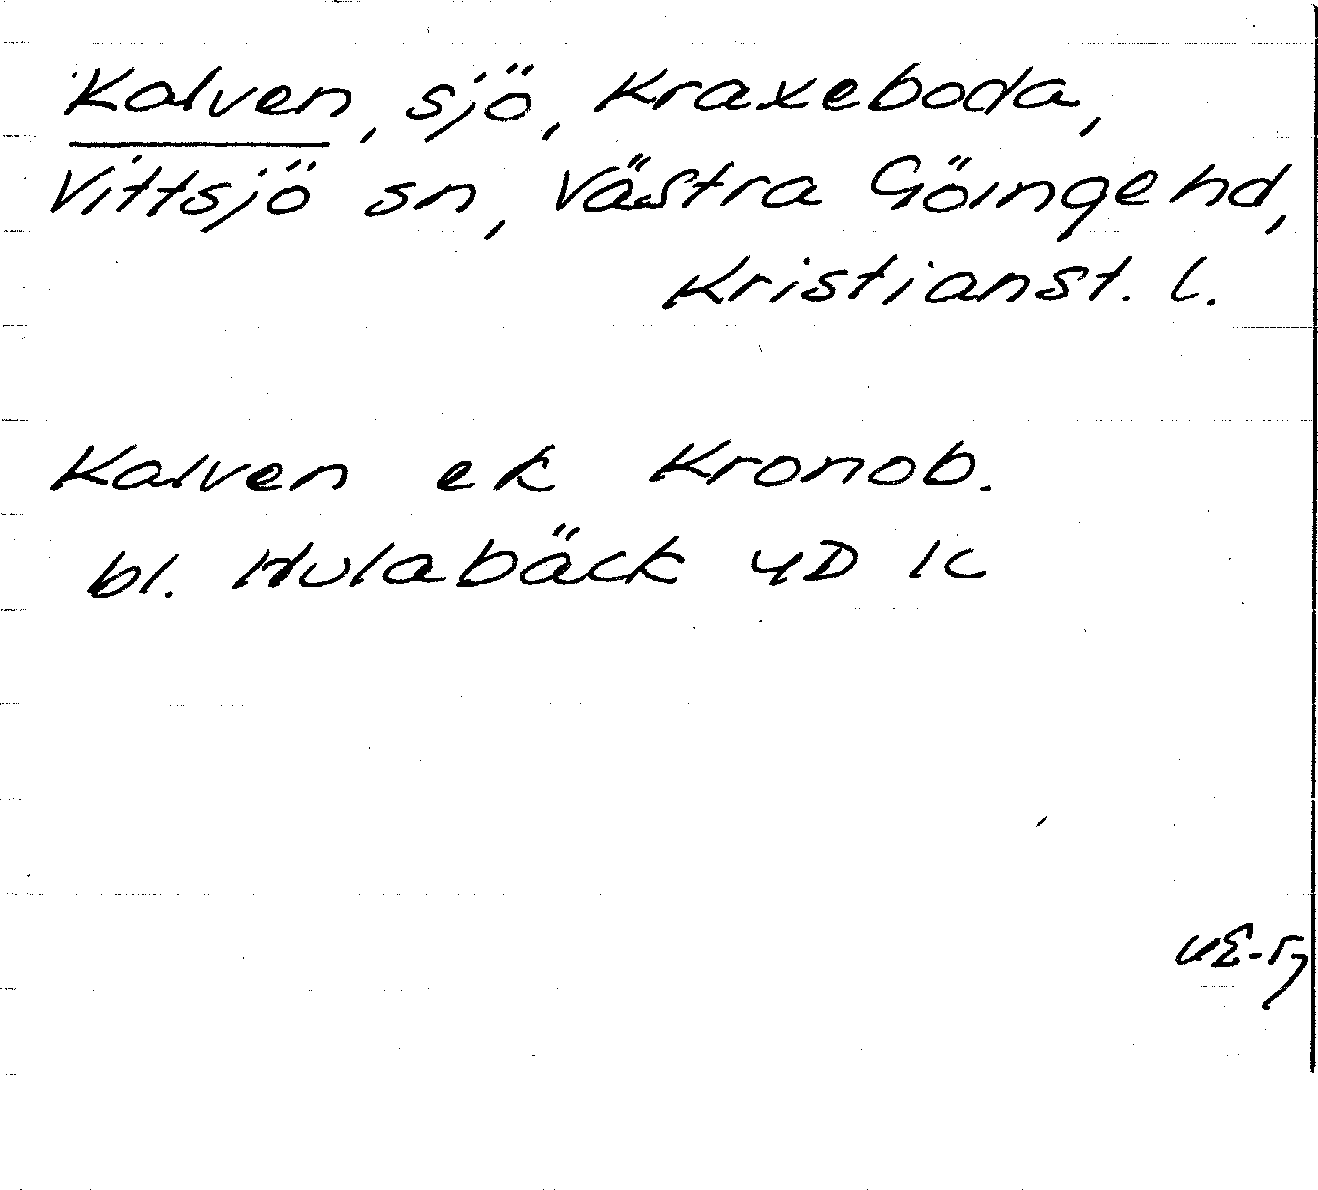 Kalven, sjö, Kraxeboda,
Vittsjö sn, Västra Göinge hd,
Kristianst. l.
Kalven ek Kronob.
bl. Hulabäck 4D 1c